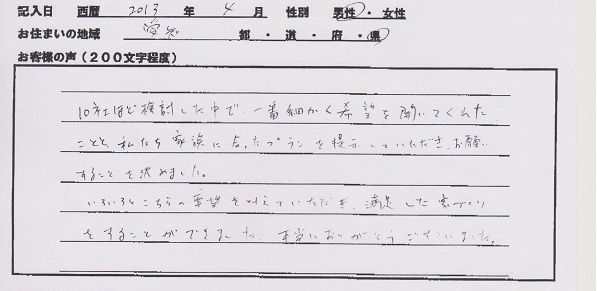 記入日 西暦 2013 年 4 月 性別 男性・女性
お住まいの地域 愛知 都・道・府・県
お客様の声(200文字程度)
10社ほど検討した中で、一番細かく希望を聞いてくれた
ことと、私たち家族に合ったプランを提示していただき、お願い
することを決めました。
いろいろとこちらの要望を叶えていただき、満足した家づくり
をすることができました。本当にありがとうございました。